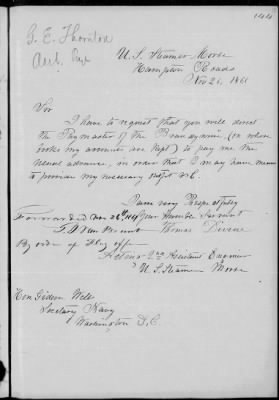 144
G. E. Thornton
Actg. Pay
U. S. Steamer Morse
Hampton Roads
Nov 26, 1861
Sir
I have to request that you will direct
the Paymaster of the Brandywine (on whose
books my accounts are kept) to pay me the
usual advance, in order that I may have means
to procure my necessary outfit &c.
I am very Respectfully
Forwarded Nov 26th Your Humble Servant
Thomas Divine
By order of Flag off
Acting 2nd Assistant Engineer
U. S. Steamer Morse
Hon Gideon Wells
Secretary Navy
Washington D. C.